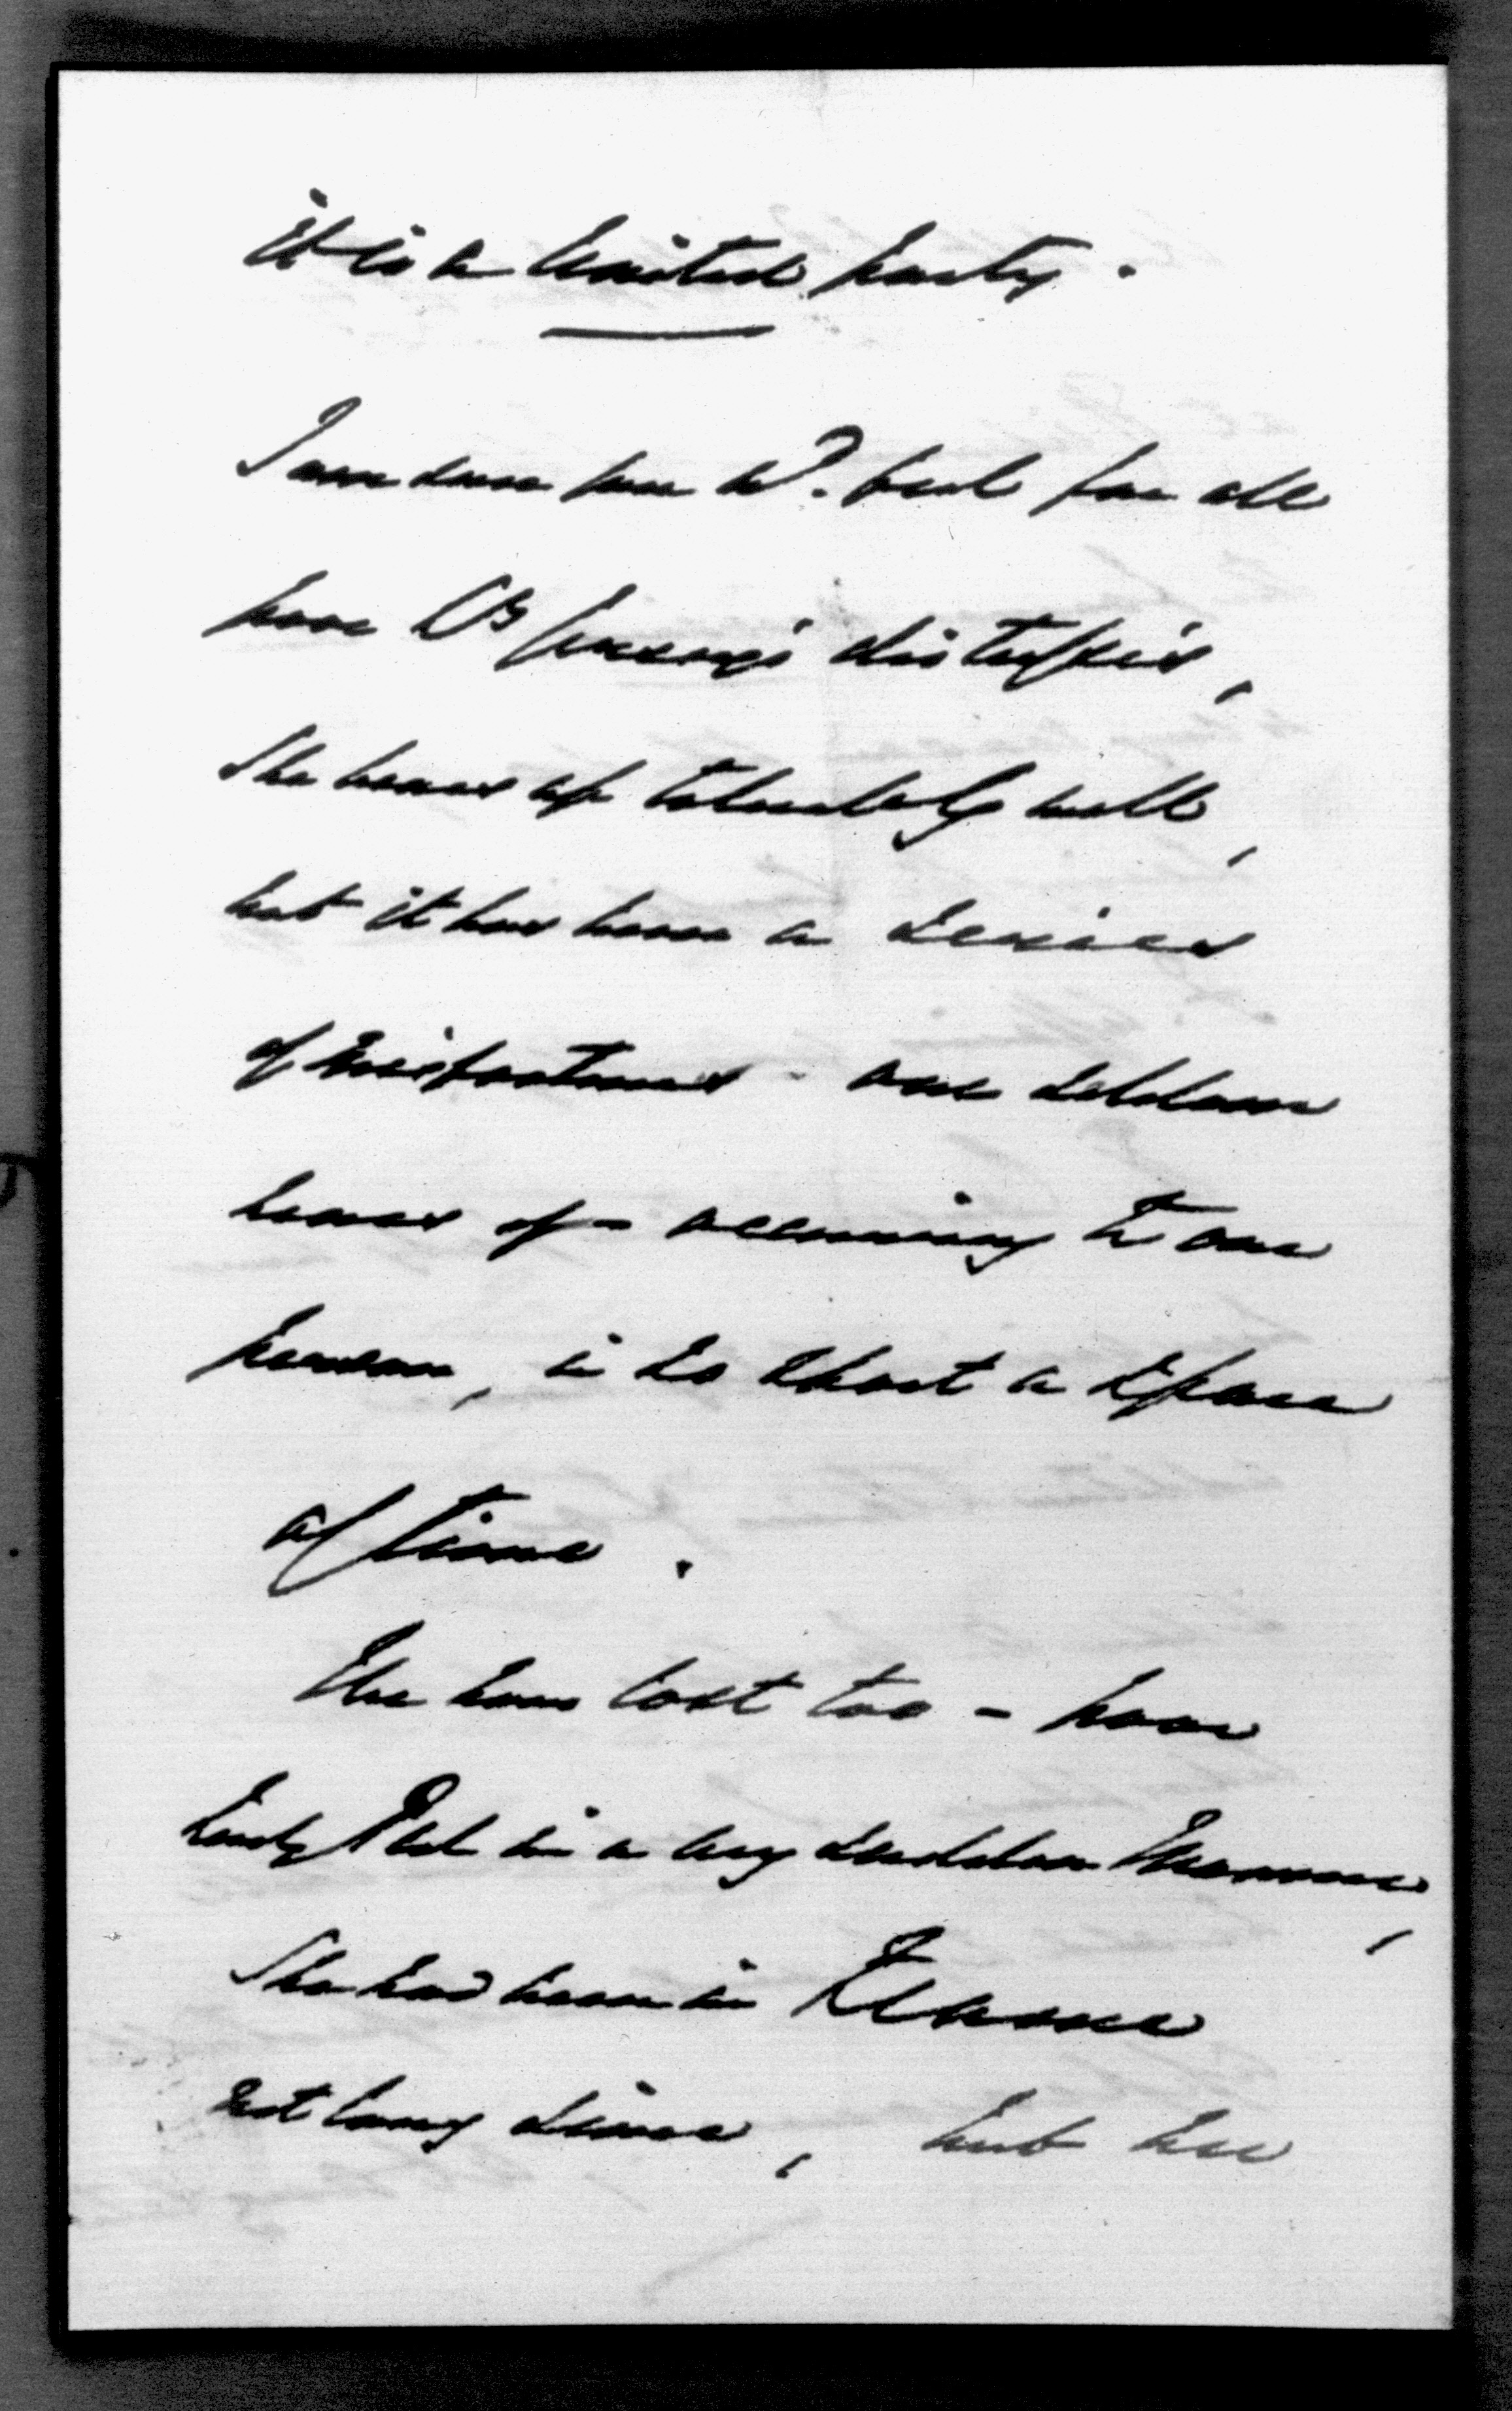 it is a United party.
I am sure you wd. feel for all
poor Css. distresses,
She bears up tolerably well,
but it has been a series
of misfortunes - one seldom
hears of - occurring to one
person, in so short a space
of time.
She has lost too - poor
Lady Peel in a very sudden manner,
She had been in
not long since, but her